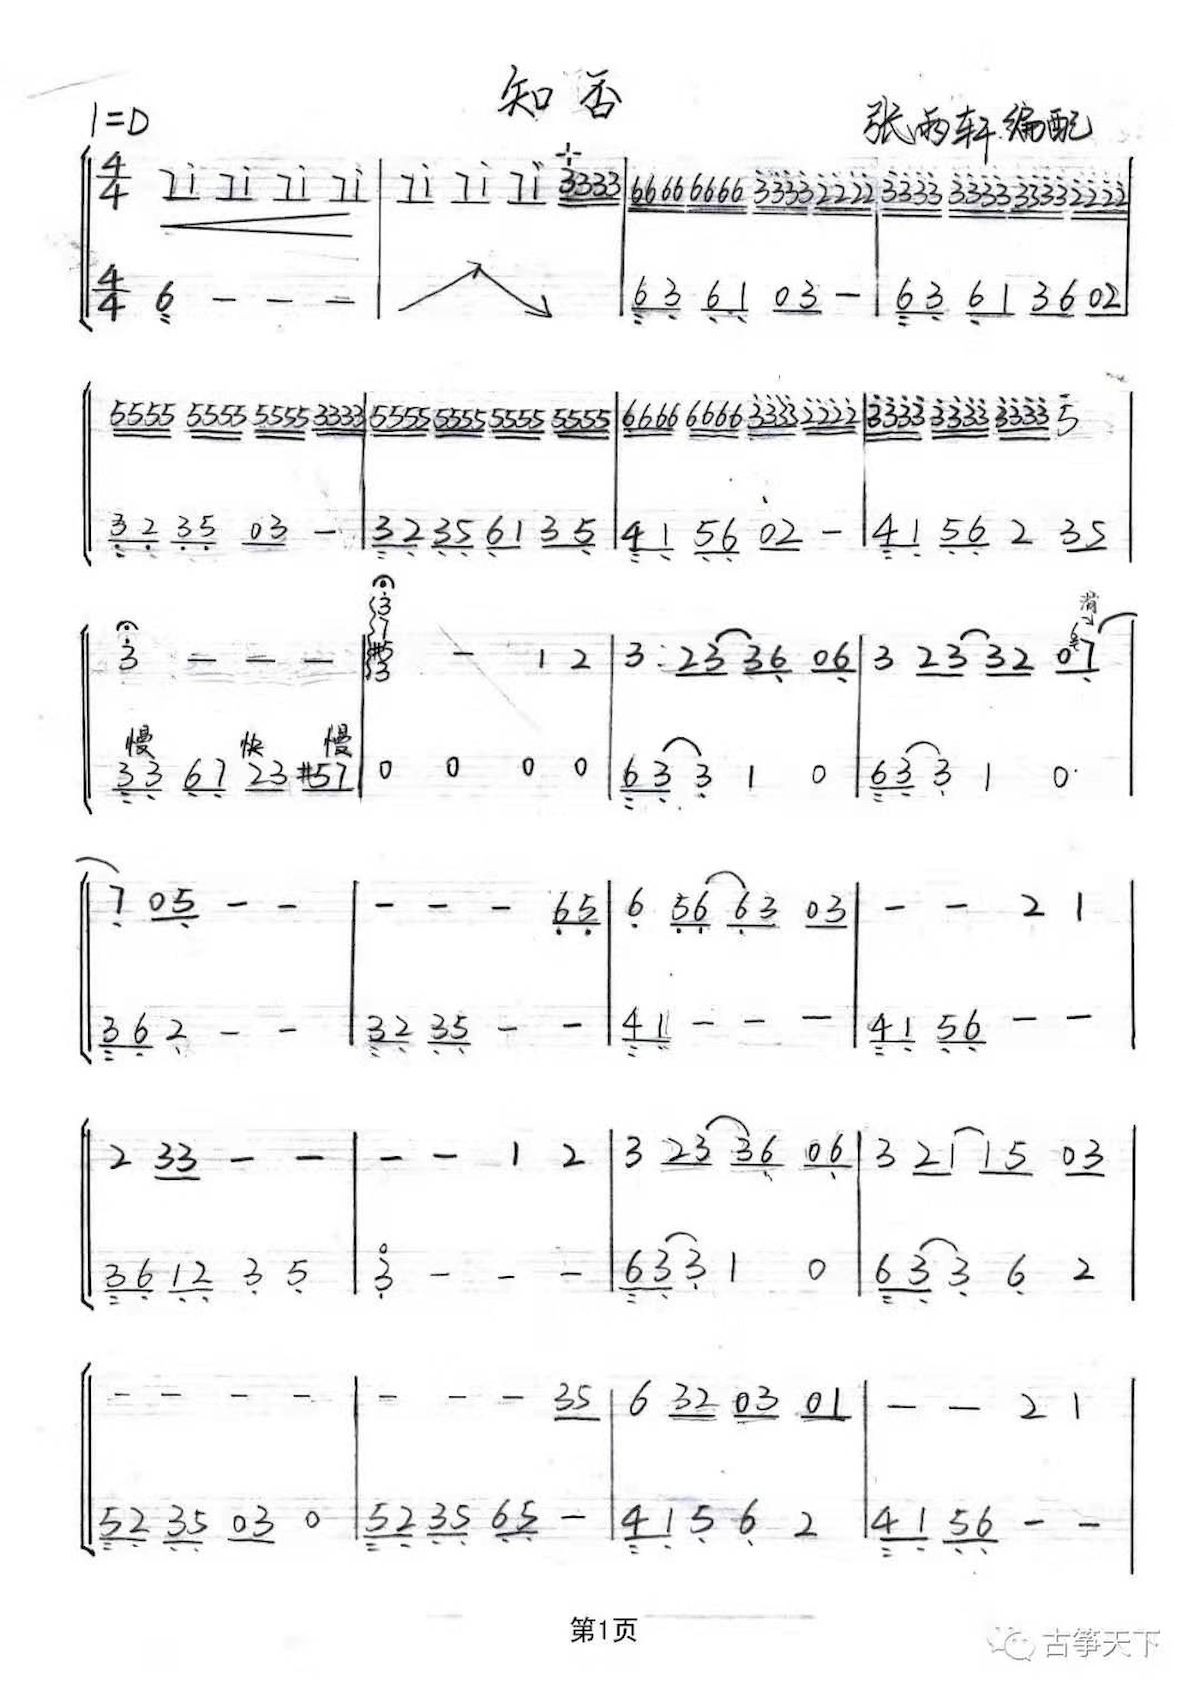 知否
1=D
张雨轩编配
4/4 7i 7i 7i 7i | 7i 7i 7i 3333 | 6666 6666 3333 2222 | 3333 3333 3333 2222
4/4 6 - - - | 63 61 03 - | 63 61 36 02
5555 5555 5555 3333 | 5555 5555 5555 5555 | 6666 6666 3333 2222 | 3333 3333 3333 5
32 35 03 - | 32 35 61 35 | 41 56 02 - | 41 56 2 35
3 - - - | 3 7 #5 3 - 1 2 | 3 23 36 06 | 3 23 32 07
慢 快 慢
33 67 23 #57 | 0 0 0 0 | 63 3 1 0 | 63 3 1 0
7 05 - - | - - - 65 | 6 56 63 03 | - - 2 1
36 2 - - | 32 35 - - | 41 - - - | 41 56 - -
2 33 - - | - - 1 2 | 3 23 36 06 | 3 21 15 03
36 12 3 5 | 3 - - - | 63 3 1 0 | 63 3 6 2
- - - - | - - - 35 | 6 32 03 01 | - - 2 1
52 35 03 0 | 52 35 65 - | 41 5 6 2 | 41 56 - -
第1页
古筝天下